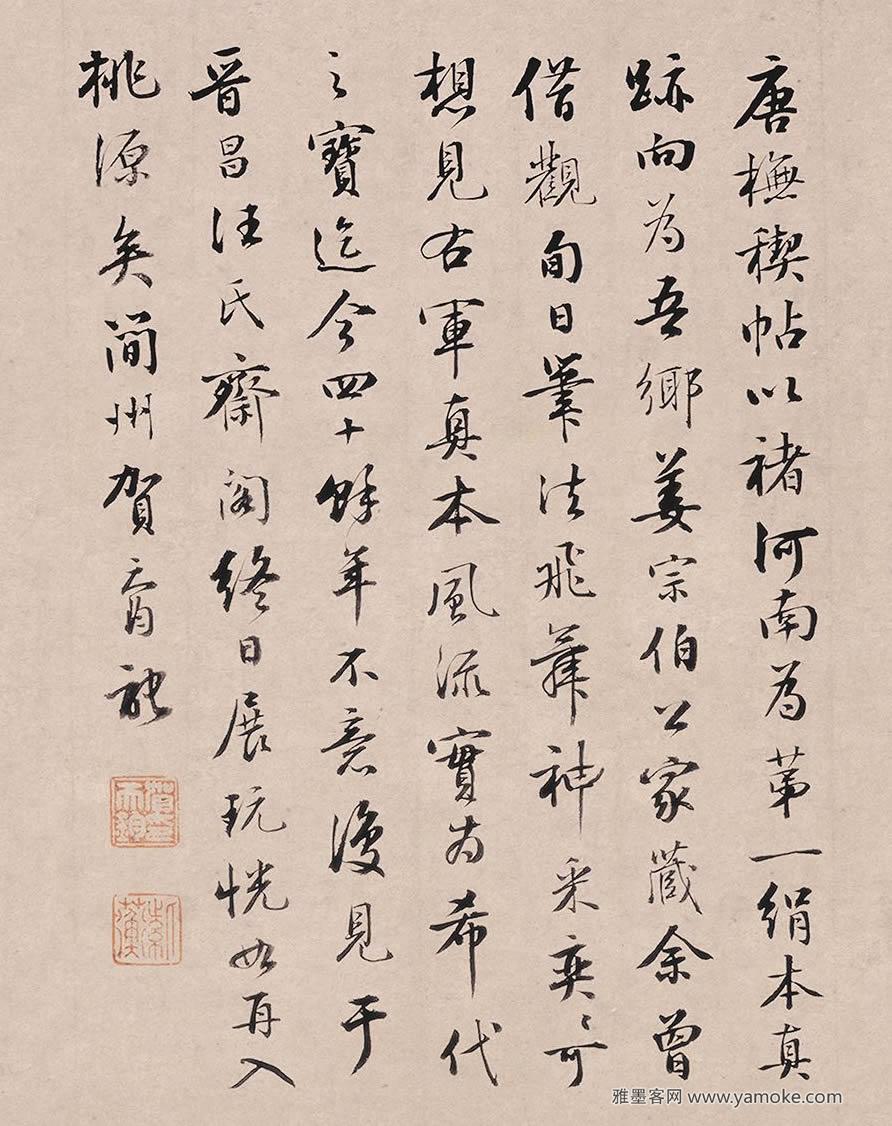 唐橅禊帖以褚河南為苐一絹本真
跡向為吾鄉姜宗伯公家藏余曾
借觀旬日筆法飛舞神采奕〻可
想見右軍真本風流實為希代
之寶迄今四十餘年不意復見于
晉昌汪氏齋閣終日展玩恍如再入
桃源矣簡州賀天
雅墨客网 www.yamoke.com